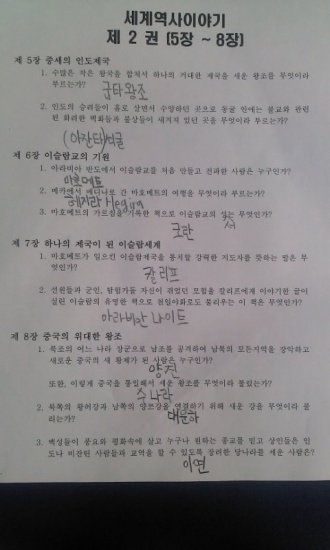 세계역사이야기
제 2 권 (5장 ~ 8장)
제 5장 중세의 인도제국
1. 수많은 작은 왕국을 합쳐서 하나의 거대한 제국을 세운 왕조를 무엇이라
부르는가?
굽타왕조
2. 인도의 승려들이 홀로 살면서 수양하던 곳으로 동굴 안에는 불교와 관련
된 화려한 벽화들과 불상들이 새겨져 있던 곳을 무엇이라 부르는가?
(아잔타)석굴
제 6장 이슬람교의 기원
1. 아라비아 반도에서 이슬람교를 처음 만들고 전파한 사람은 누구인가?
마호메트
2. 메카에서 메디나로 간 마호메트의 여행을 무엇이라 부르는가?
헤지라 Hegira
3. 마호메트의 가르침을 기록한 책으로 이슬람교의 성서는 무엇인가?
코란
제 7장 하나의 제국이 된 이슬람세계
1. 마호메트가 일으킨 이슬람제국을 통치할 강력한 지도자를 뜻하는 말은 무
엇인가?
칼리프
2. 선원들과 군인, 탐험가들 자신이 겪었던 모험을 칼리프에게 이야기한 글이
실린 이슬람의 유명한 책으로 천일야화로도 불리우는 이 책은 무엇인가?
아라비안 나이트
제 8장 중국의 위대한 왕조
1. 북조의 어느 나라 장군으로 남조를 공격하여 남북의 모든지역을 장악하고
새로운 중국의 새 황제가 된 사람은 누구인가?
양견
또한, 이렇게 중국을 통일해서 세운 왕조를 무엇이라 불렀는가?
수나라
2. 북쪽의 황허강과 남쪽의 양쯔강을 연결하기 위해 새운 강을 무엇이라 불
리는가?
대운하
3. 백성들이 풍요와 평화속에 살고 누구나 원하는 종교를 믿고 상인들은 인
도나 비잔틴 사람들과 교역을 할 수 있도록 장려한 당나라를 세운 사람은?
이연